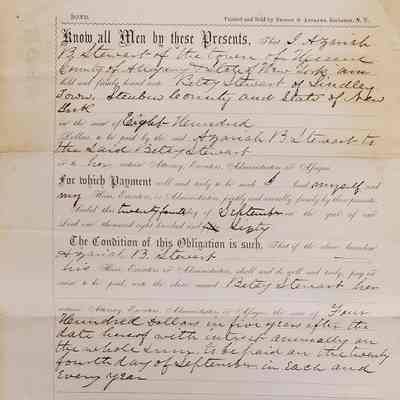 BOND.
Know all Men by these Presents, That I Azariah
B. Stewart of the town of
County of Allegany State of New York am
held and firmly bound unto Betsy Stewart of Lindley
Town, Steuben County and State of New
York
in the sum of Eight Hundred
Dollars to be paid by the said Azariah B Stewart to
the Said Betsy Stewart
or to her certain Attorney, Executors, Administrators or Assigns
For which Payment well and truly to be made I bind myself and
my Heirs, Executors, or Administrators, jointly and severally, firmly by these presents.
Sealed this twenty fourth day of September in the year of our
Lord one thousand eight hundred and Sixty
The Condition of this Obligation is such, That if the above bounden
Azariah B. Stewart
his Heirs, Executors, or Administrators, shall and do well and truly pay or
cause to be paid, unto the above named Betsy Stewart her
certain Attorney, Executors, Administrators or Assigns, the sum of Four
Hundred Dollars in five years after the
date hereof with interest annually on
the whole sum to be paid on the twenty
fourth day of September in Each and
Every year